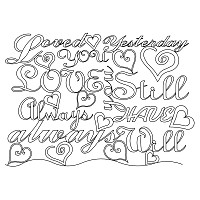 Loved Yesterday
You
LOVE Still
Always HAVE
always Will